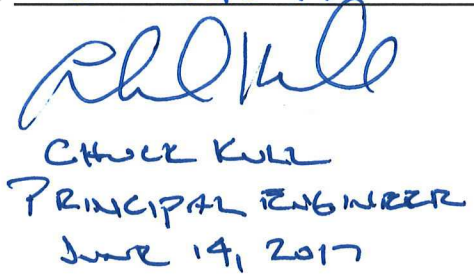 Chuck Kull
PRINCIPAL ENGINEER
JUNE 14, 2017